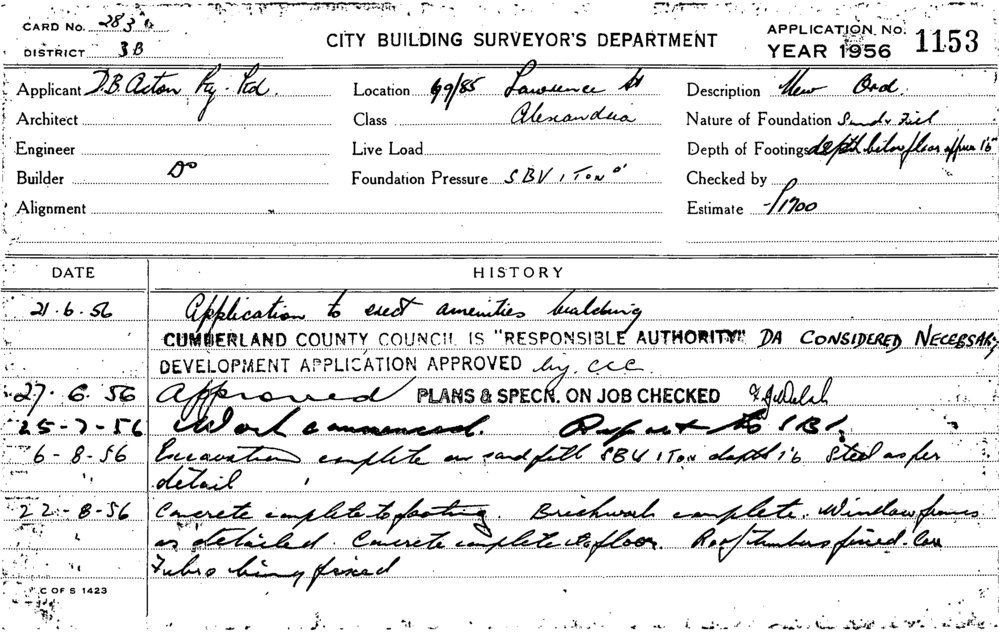 CARD No. 283
DISTRICT 3B
CITY BUILDING SURVEYOR'S DEPARTMENT
APPLICATION No. 1153
YEAR 1956
Applicant D.B. Aston Pty. Ltd.
Location 69/85 Lawrence St
Description New Ord.
Architect
Class Alexandria
Nature of Foundation Sand & Fill
Engineer
Live Load
Depth of Footings depth below floor approx 1'6"
Builder Do
Foundation Pressure SBV 1 Ton
Checked by
Alignment
Estimate 1700
DATE HISTORY
21.6.56 Application to erect amenities building
CUMBERLAND COUNTY COUNCIL IS "RESPONSIBLE AUTHORITY" DA CONSIDERED NECESSARY
DEVELOPMENT APPLICATION APPROVED by CCC
27.6.56 Approved PLANS & SPECN. ON JOB CHECKED
25-7-56 Work commenced. Report to SBI.
6-8-56 Excavation complete on sand fill SBV 1 Ton depth 1'6 Steel as per
detail
22-8-56 Concrete complete to footing. Brickwork complete. Window frames
as detailed. Concrete complete to floor. Roof timbers fixed.
Fibro being fixed
C OF S 1423